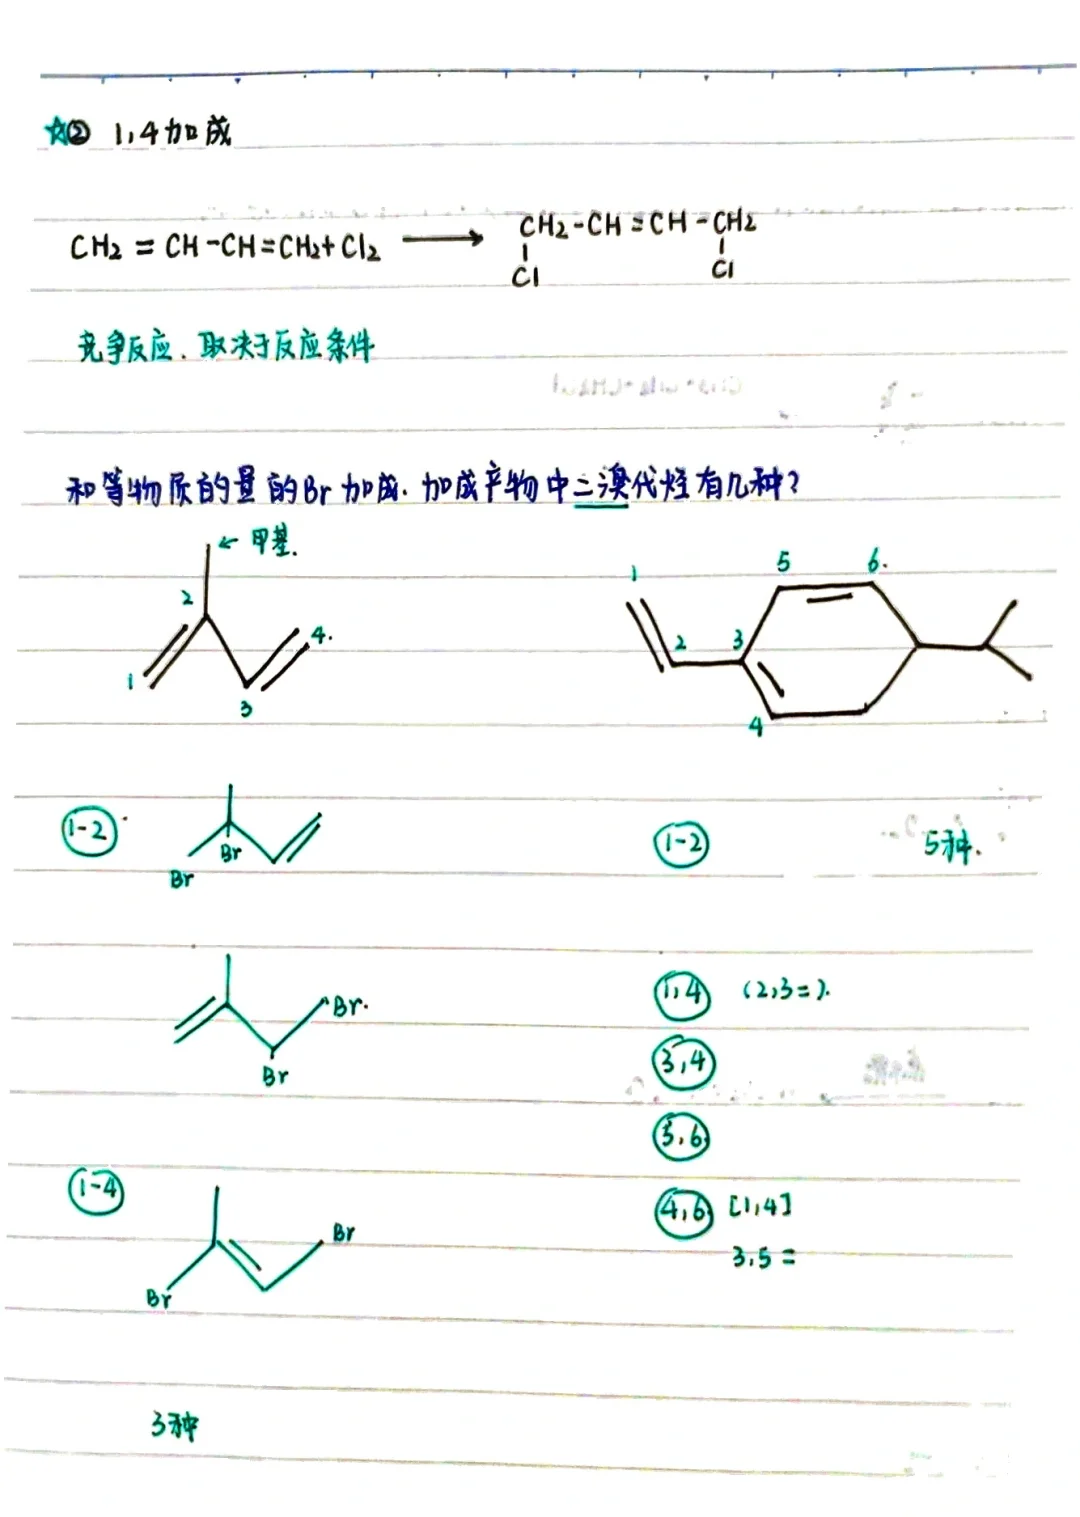 ☆② 1,4加成
CH₂=CH-CH=CH₂+Cl₂ ⟶ CH₂-CH=CH-CH₂
Cl Cl
竞争反应、取决于反应条件
和等物质的量的Br加成.加成产物中二溴代烃有几种?
←甲基.
1 2 3 4.
1 2 3 4 5 6.
①-2 Br Br
Br. Br
1-4 Br Br
3种
1-2 5种.
1,4 (2,3=).
3,4
5,6
4,6 [1,4]
3,5=